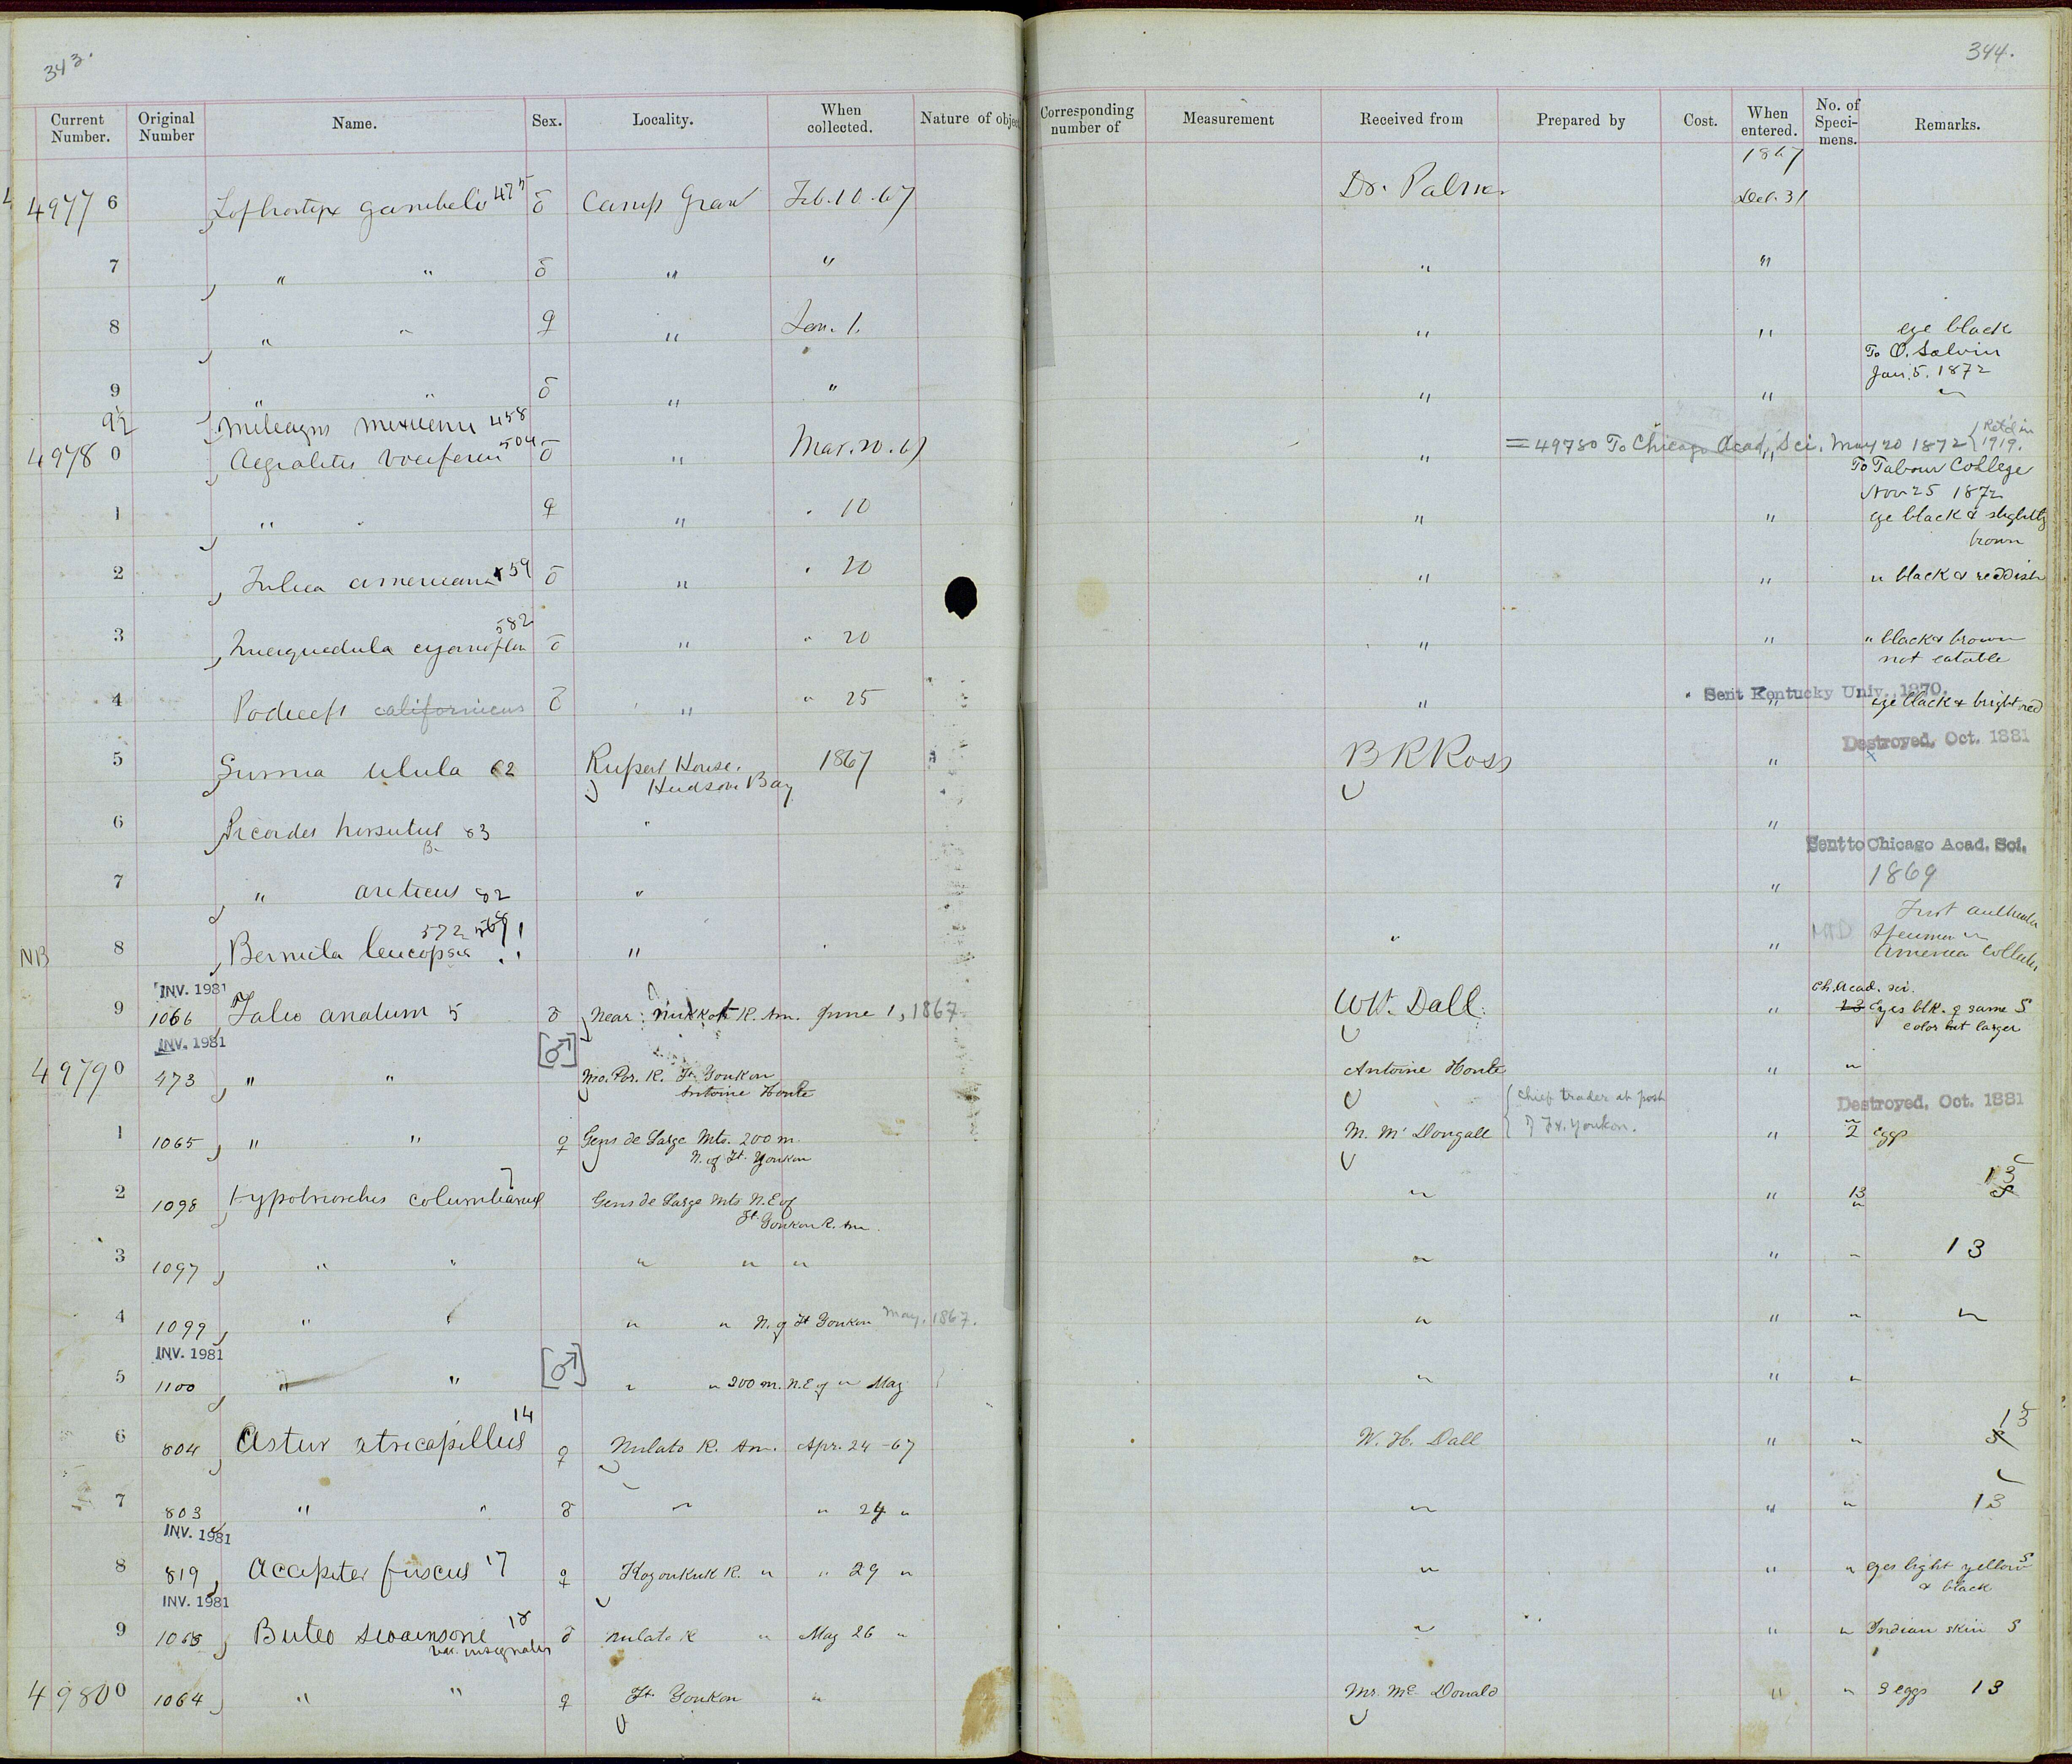 343.
344.
Current Number. Original Number Name. Sex. Locality. When collected. Nature of objec Corresponding number of Measurement Received from Prepared by Cost. When entered. No. of Speci- mens. Remarks.
1867
49776 Lophortyx gambeli 475 ♂ Camp Grant Feb. 10. 67 Dr. Palmer Dec. 31
7 " " ♂ " " " "
8 " " ♀ " Jan. 1. " " eye black
To O. Salvin
Jan. 5. 1872
9 " " ♂ " " " " "
9½ Meleagris mexicana 458 = 49780 To Chicago Acad. Sci. May 20 1872 { Ret'd in 1919.
49780 Aegialitis vociferus 504 ♂ " Mar. 20. 67 " " To Tabour College
Nov 25 1872
1 " " ♀ " " 10 " " eye black & slightly
brown
2 Fulica americana 559 ♂ " " 20 " " " black & reddish
3 Querquedula cyanoptera 582 ♂ " " 20 " " " black & brown
not eatable
4 Podiceps californicus ♂ " " 25 " Sent Kentucky Univ. 1870. " eye black & bright red
Destroyed, Oct. 1881
5 Surnia ulula 62 Rupert House, 1867 B R Ross "
Hudson Bay
6 Picoides hirsutus 83 " "
B.
Sent to Chicago Acad. Sci.
7 " arcticus 82 " " 1869
8 NB Bernicla leucopsis 572 567 !! " " " First authentic
specimen in
America collected
INV. 1981
Ch. Acad. sci.
9 1066 Falco anatum 5 ♂ Near Nukkok R. Am. June 1, 1867 WH. Dall. " 13 Eyes blk. ♀ same S
color but larger
INV. 1981
49790 473 " " [♂] Mo. Por. R. Ft. Youkon Antoine Houle " "
Antoine Houle
{ Chief trader at post
of Ft. Youkon.
Destroyed, Oct. 1881
1 1065 " " ♀ Gens de Large Mts. 200 m. M. McDougall " 2 eggs
N. of Ft. Youkon
2 1098 Hypotriorchis columbarius 7 Gens de Large Mts N.E of " " 13 13 S
Ft. Youkon R. Am.
3 1097 " " " " " " " " 13
4 1099 " " " " N. of Ft Youkon May, 1867. " " " "
INV. 1981
5 1100 " " [♂] " " 200 m. N.E of " May " " "
6 804 Astur atricapillus 14 ♀ Nulato R. Am. Apr. 24 -67 W. H. Dall " " 13 S
7 803 " " ♂ " " 24 " " " " 13
INV. 1981
8 819 Accipiter fuscus 17 ♀ Koyoukuk R. " " 29 " " " " eyes light yellow S
& black
INV. 1981
9 1068 Buteo swainsoni 18 ♂ Nulato R " May 26 " " " " Indian skin S
var. insignatus
49800 1064 " " ♀ Ft. Youkon " Mr. McDonald " " 3 eggs 13